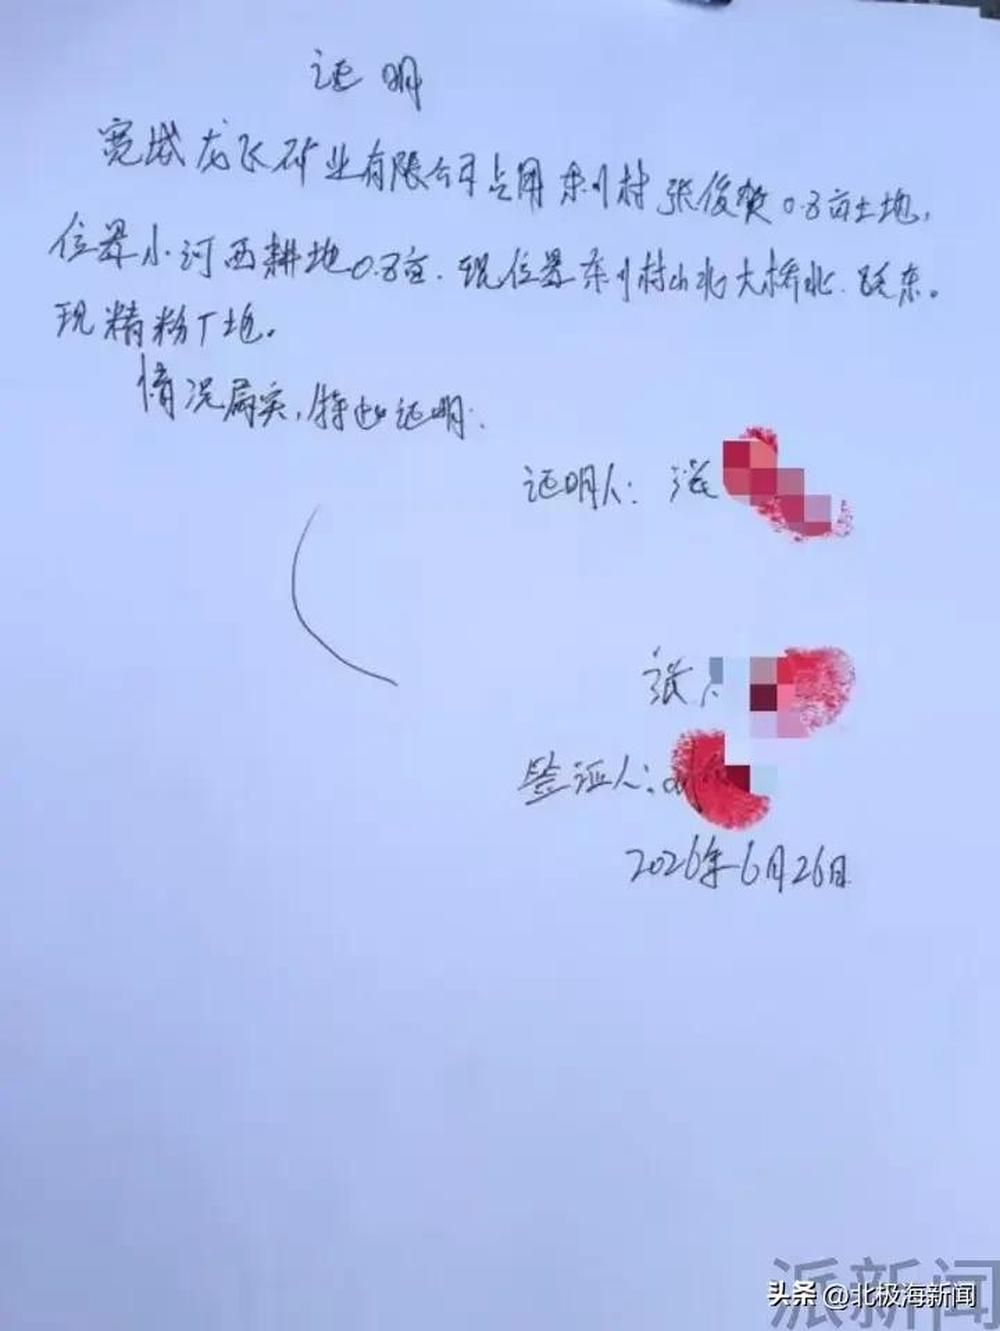 证明
宽城龙飞矿业有限公司占用东川村张俊贺0.8亩土地,
位置小河西耕地0.8亩.现位置东川村山北大桥北.路东。
现精粉厂地。
情况属实,特此证明.
证明人: 张
张
签证人:
2026年6月26日
派新闻
头条 @北极海新闻